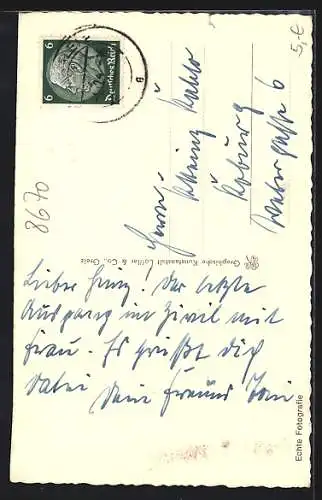 Lieber Heinz! Der letzte
Ausgang in Zivil mit
Frau. Es grüßt Dich
Dein Freund Toni
Herrn
Heinz
Coburg
Webergasse 6
6
Deutsches Reich
6
8670
5,€
Graphische Kunstanstalt Löffler & Co., Greiz
Echte Fotografie